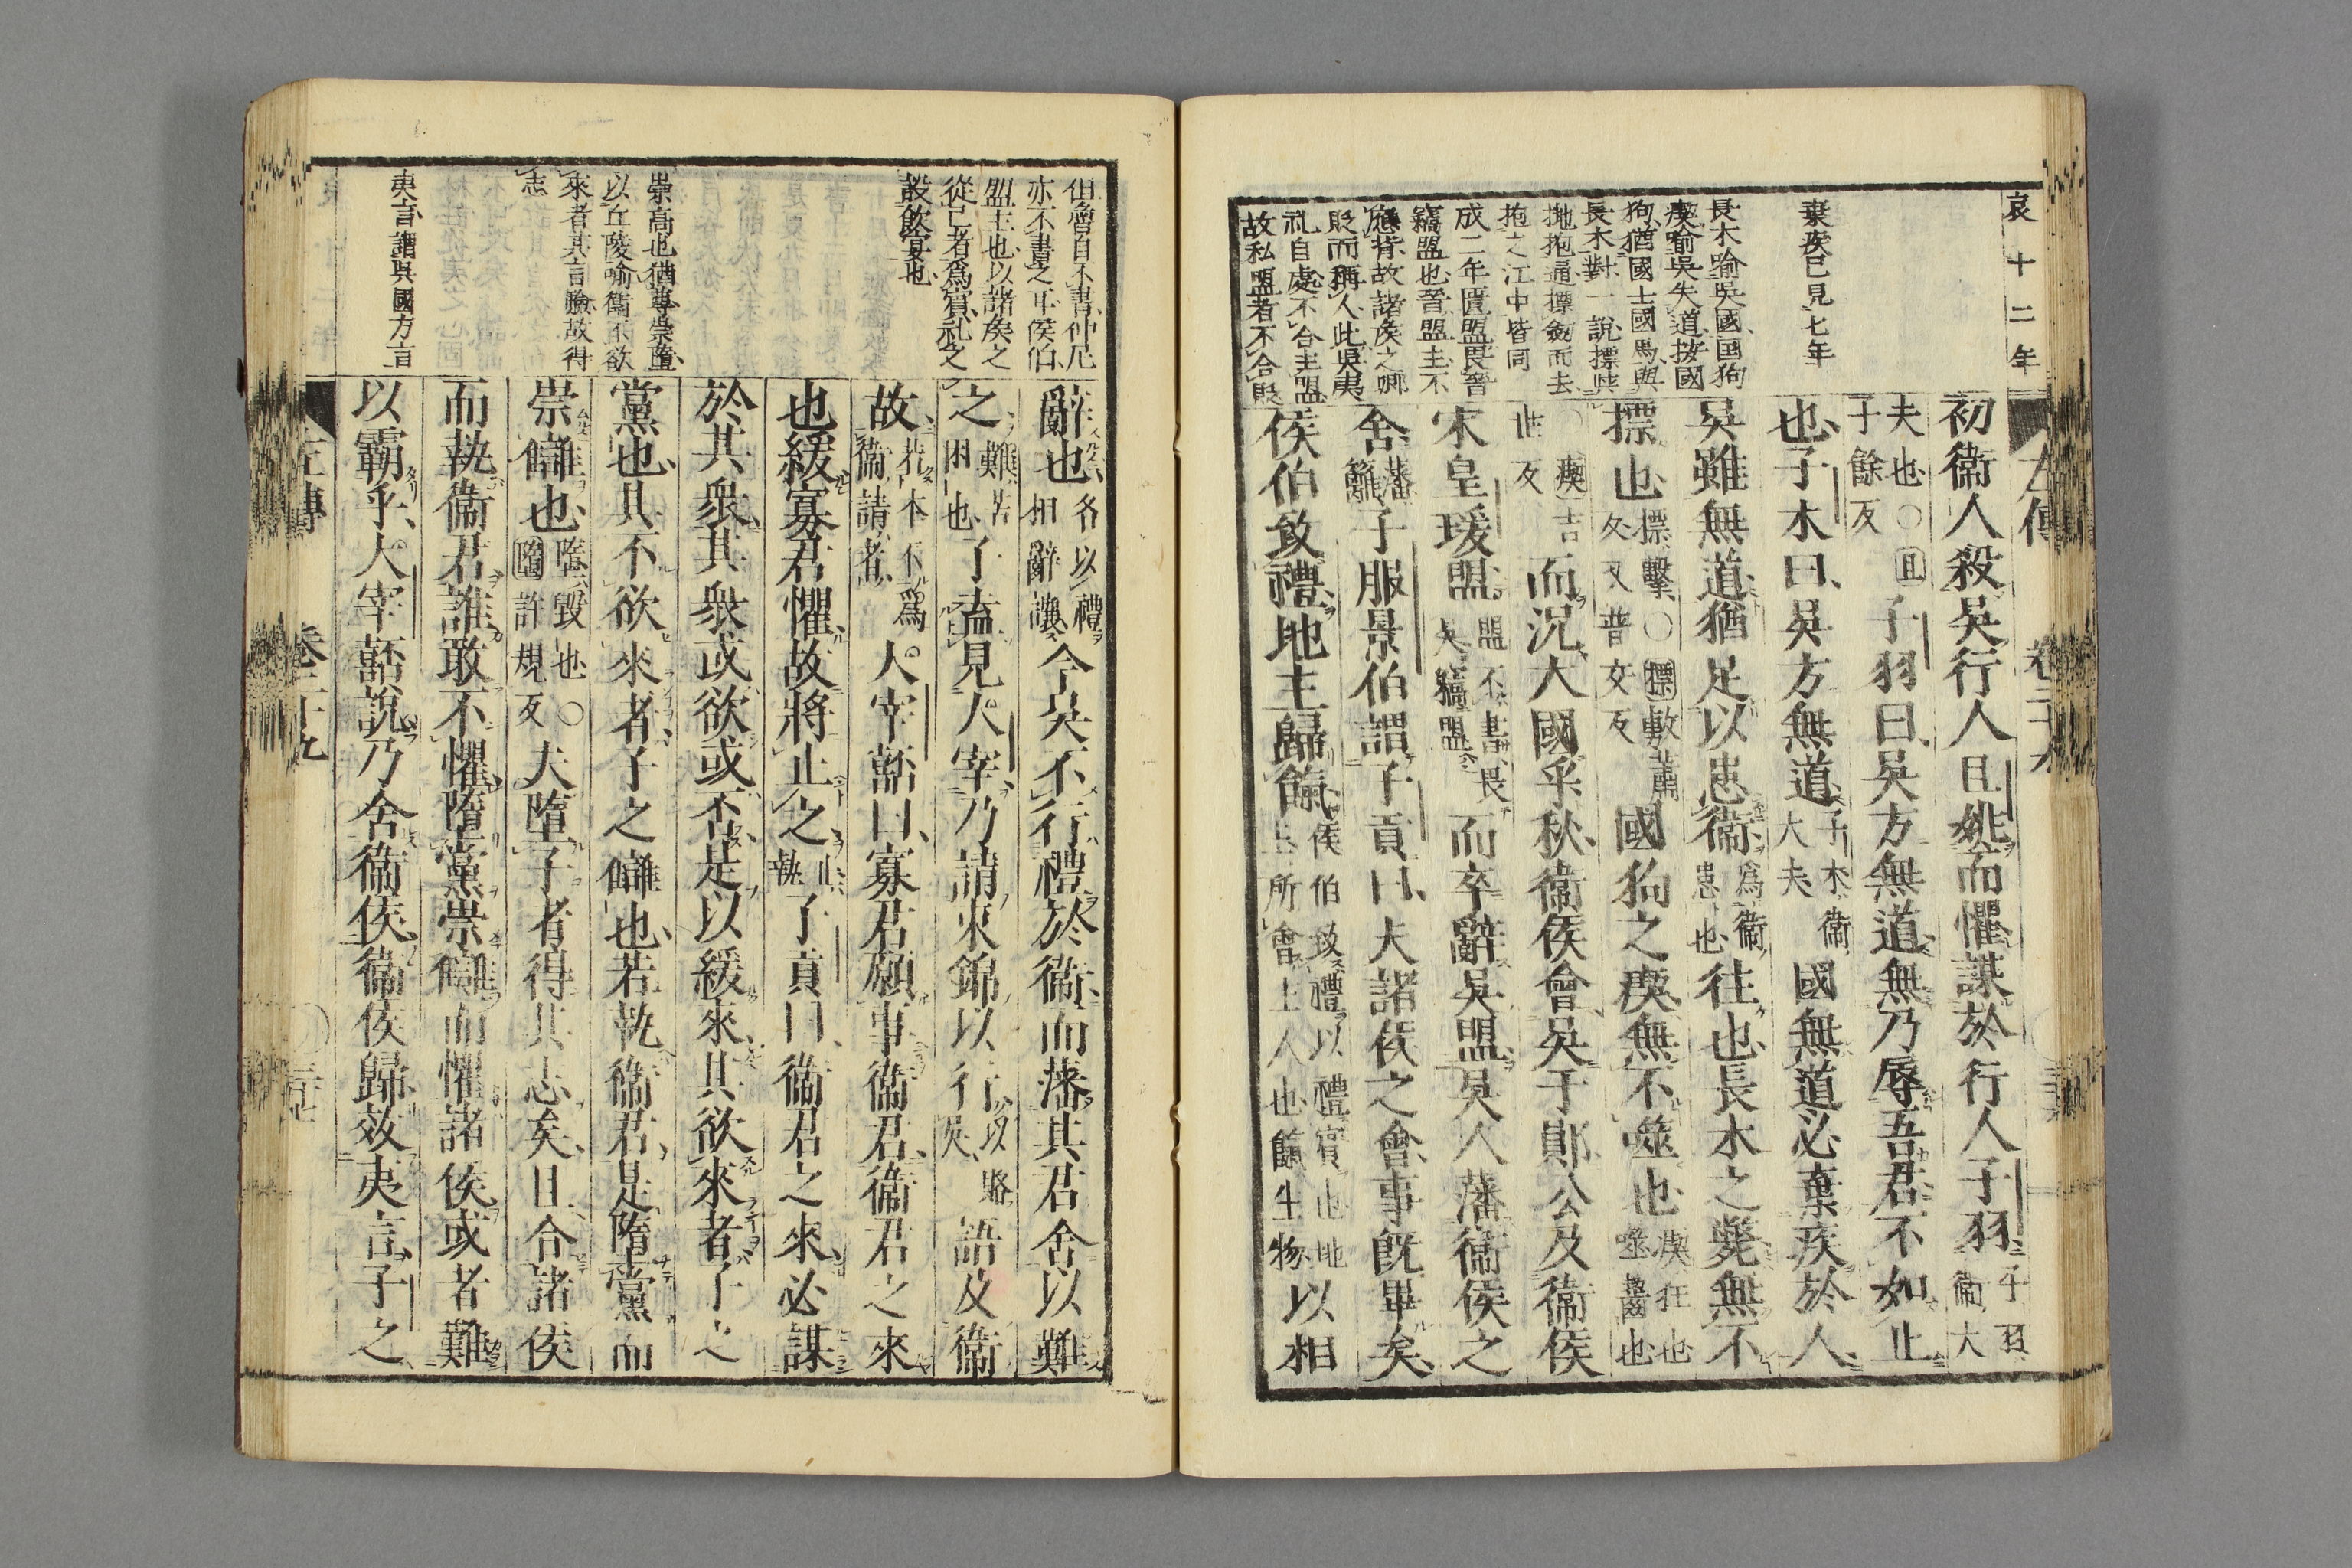 哀十二年
棄疾已見七年
長木喻吳國国狗
瘈喻吳失道按國
狗猶國士國馬與
長木對一說摽與
拋抱通摽劔而去
抱之江中皆同
成二年匱盟畏晉
竊盟也晉盟主不
應背故諸侯之卿
貶而稱人此吳夷
礼自處不合主盟
故私盟者不合貶
初衞人殺吳行人且姚而懼謀於行人子羽子羽衞大
夫也○且子餘反子羽曰吳方無道無乃辱吾君不如止
也子木曰吳方無道子木衞大夫國無道必棄疾於人
吳雖無道猶足以患衞爲衞患也往也長木之斃無不
摽也摽擊○摽敷蕭反又普交反國狗之瘈無不噬也瘈狂也噬齧也
○瘈吉世反而況大國乎秋衞侯會吳于鄖公及衞侯
宋皇瑗盟盟不書畏吳竊盟而卒辭吳盟吳人藩衞侯之
舍藩籬子服景伯謂子貢曰夫諸侯之會事旣畢矣
侯伯致禮地主歸餼侯伯致禮以禮賓也地主所會主人也餼生物以相
但魯自不書仲尼
亦不書之耳侯伯
盟主也以諸侯之
從已者爲賓礼之
設飮宴也
崇高也猶尊崇墮
以丘陵喻衞不欲
來者其言驗故得
志
夷言謂吳國方言
辭也各以禮相辭讓今吳不行禮於衞而藩其君舍以難
之難苦困也子盍見大宰乃請束錦以行以賂吳語及衞
故若本不爲衞請者大宰嚭曰寡君願事衞君衞君之來
也緩寡君懼故將止之止執子貢曰衞君之來必謀
於其衆其衆或欲或否是以緩來其欲來者子之
黨也其不欲來者子之讎也若執衞君是墮黨而
崇讎也墮毀也○墮許規反夫墮子者得其志矣且合諸侯
而執衞君誰敢不懼墮黨崇讎而懼諸侯或者難
以霸乎大宰嚭說乃舍衞侯衞侯歸效夷言子之
左傳 卷二十九